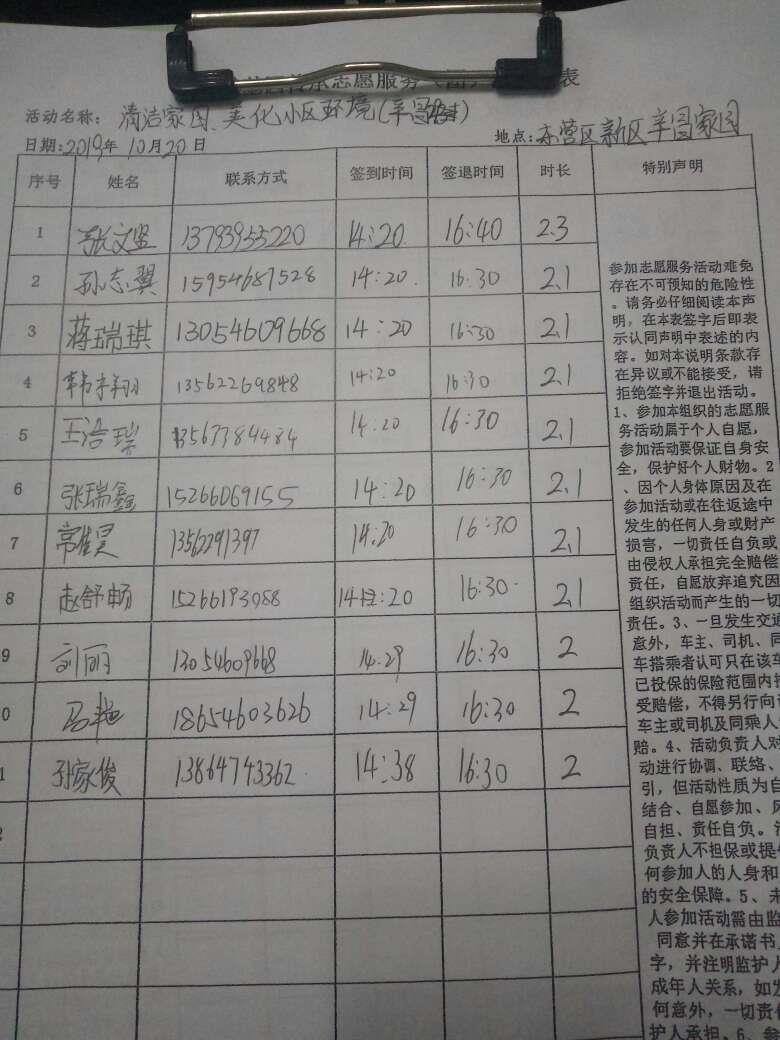 志愿服务
表
活动名称: 清洁家园、美化小区环境(辛园
日期:2019年10月20日
地点:东营区新区辛园家园
序号 姓名 联系方式 签到时间 签退时间 时长 特别声明
1 张文 13793955220 14:20 16:40 2.3
2 孙志翼 15954687528 14:20 16:30 2.1
3 蒋瑞琪 13054609668 14:20 16:30 2.1
4 韩 翔 13562269848 14:20 16:30 2.1
5 王浩瑞 13567384484 14:20 16:30 2.1
6 张瑞鑫 15266069155 14:20 16:30 2.1
7 常 昊 13562291397 14:20 16:30 2.1
8 赵舒畅 15266193088 14:20 16:30 2.1
9 刘丽 13054609668 14:29 16:30 2
0 马艳 18654603626 14:29 16:30 2
1 孙家俊 13864743362 14:38 16:30 2
2
参加志愿服务活动难免
存在不可预知的危险性
。请务必仔细阅读本声
明,在本表签字后即表
示认同声明中表述的内
容。如对本说明条款存
在异议或不能接受,请
拒绝签字并退出活动。
1、参加本组织的志愿服
务活动属于个人自愿,
参加活动要保证自身安
全,保护好个人财物。2
、因个人身体原因及在
参加活动或在往返途中
发生的任何人身或财产
损害,一切责任自负或
由侵权人承担完全赔偿
责任,自愿放弃追究因
组织活动而产生的一切
责任。3、一旦发生交通
意外,车主、司机、同
车搭乘者认可只在该车
已投保的保险范围内
受赔偿,不得另行向
车主或司机及同乘人
赔。4、活动负责人对
动进行协调、联络、
引,但活动性质为自
结合、自愿参加、风
自担、责任自负。活
负责人不担保或提
何参加人的人身和
的安全保障。5、未
人参加活动需由监
同意并在承诺书
字,并注明监护人
成年人关系,如发
何意外,一切责任
护人承担。6、参